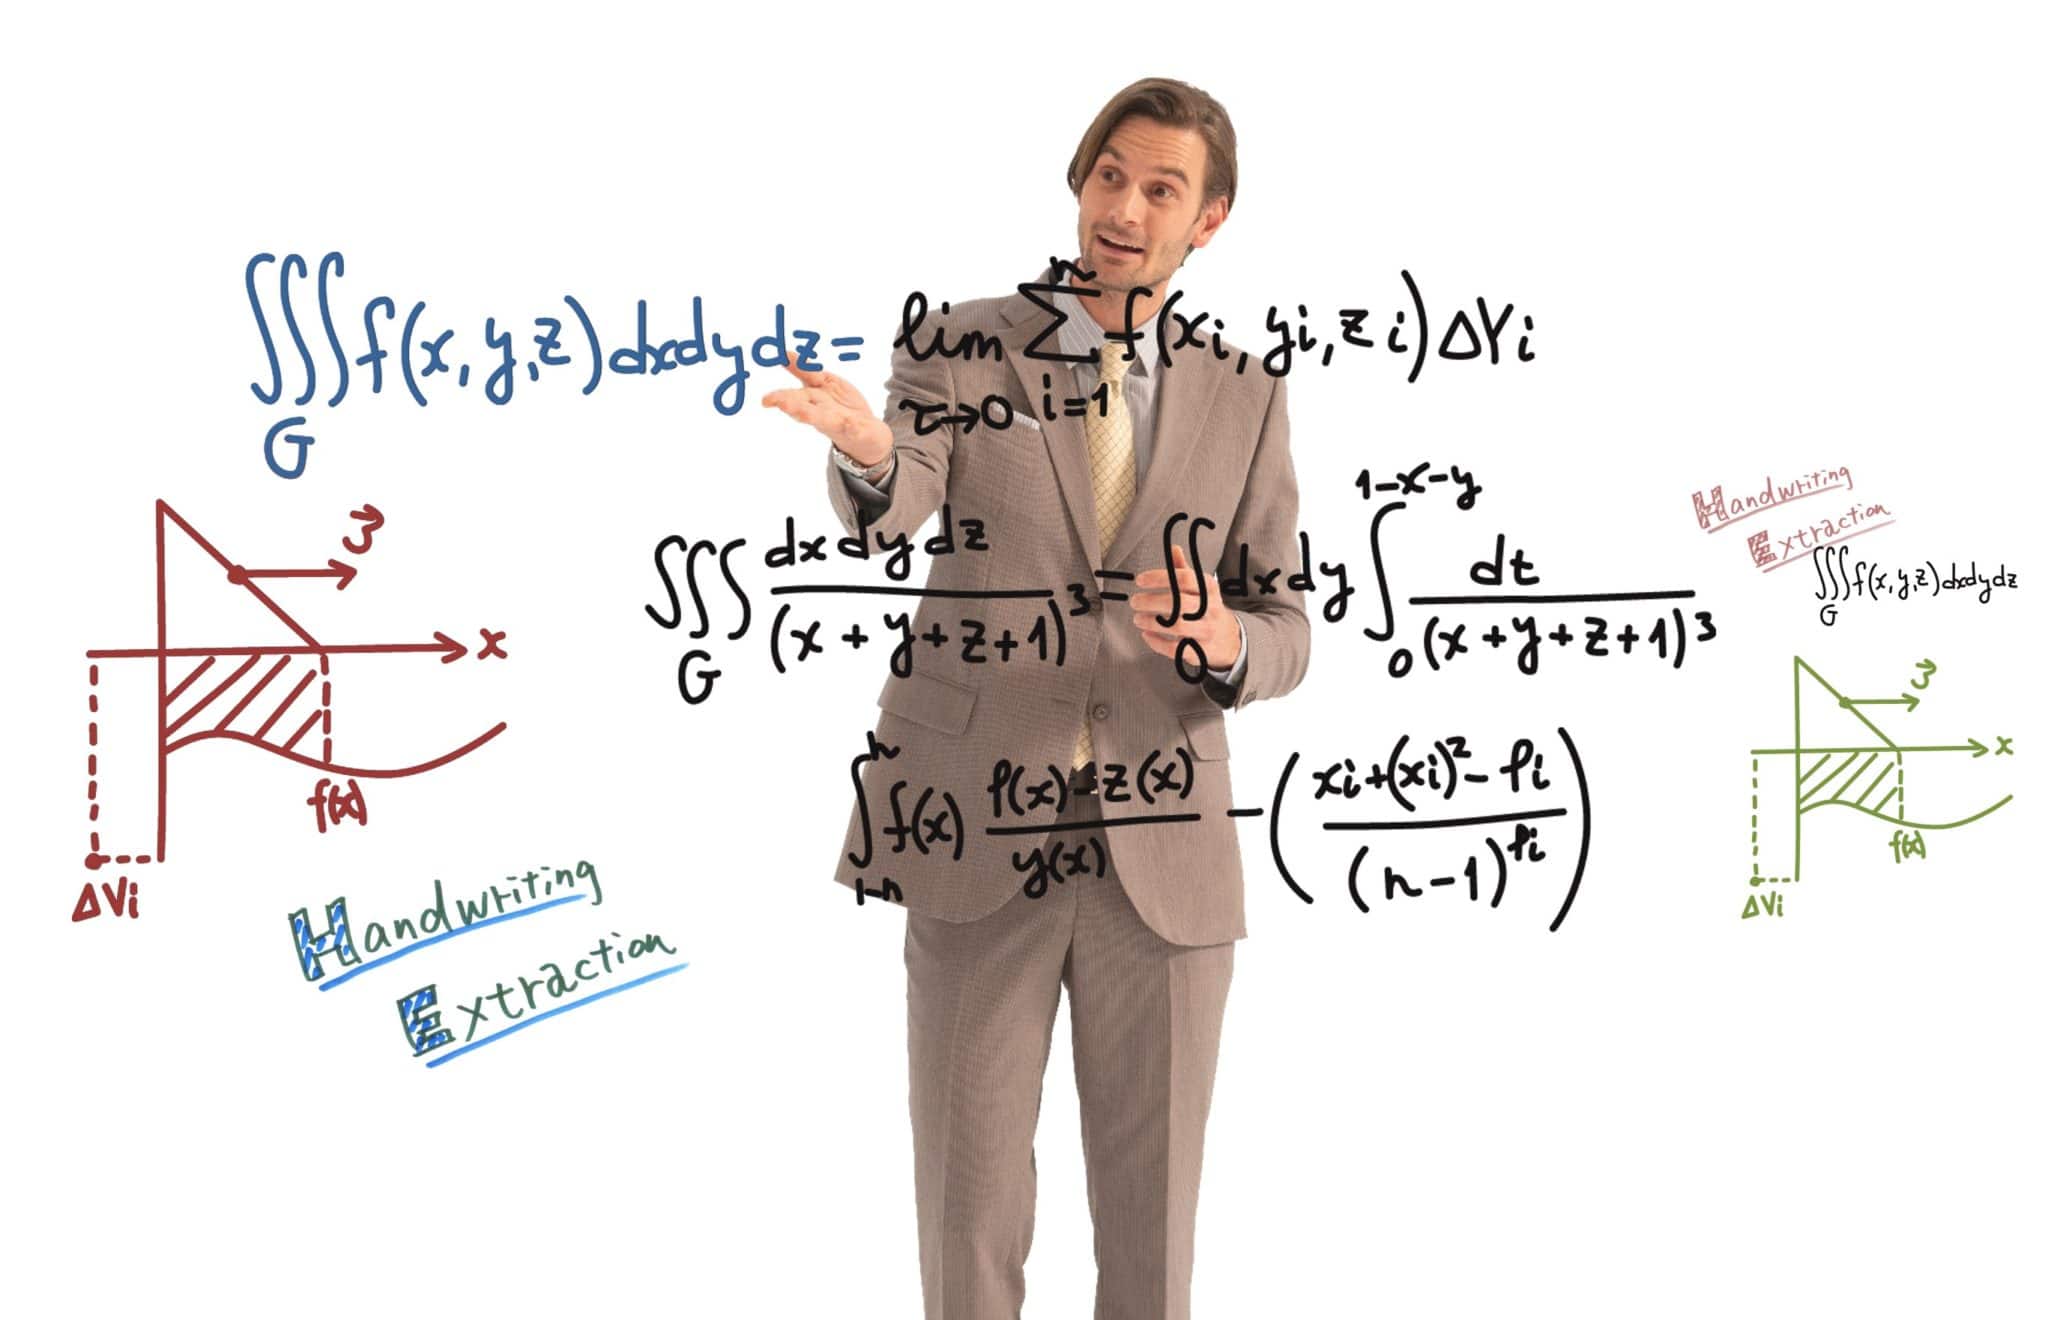 ∭_G f(x,y,z)dxdydz = lim_{τ→0} ∑_{i=1}^{n} f(xi,yi,zi)ΔVi
∭_G dxdydz/(x+y+z+1)^3 = ∬_0 dxdy ∫_0^{1-x-y} dt/(x+y+z+1)^3
∫_{1-n}^{n} f(x) (P(x)-z(x))/y(x) - ((xi+(xi)^2-Pi)/(n-1)^{Pi})
x
f(x)
ΔVi
Handwriting
Extraction
Handwriting
Extraction
∭_G f(x,y,z)dxdydz
x
f(x)
ΔVi